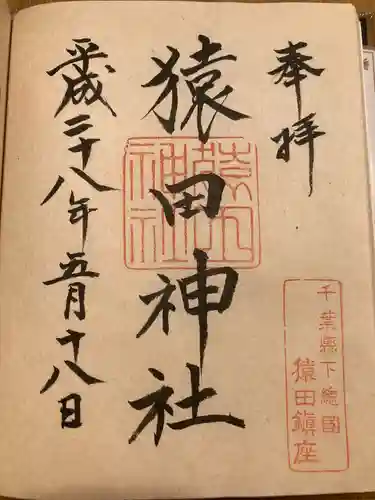 奉拝
千葉県下総国
猿田鎮座
猿田神社
猿田
神社
平成二十八年五月十八日